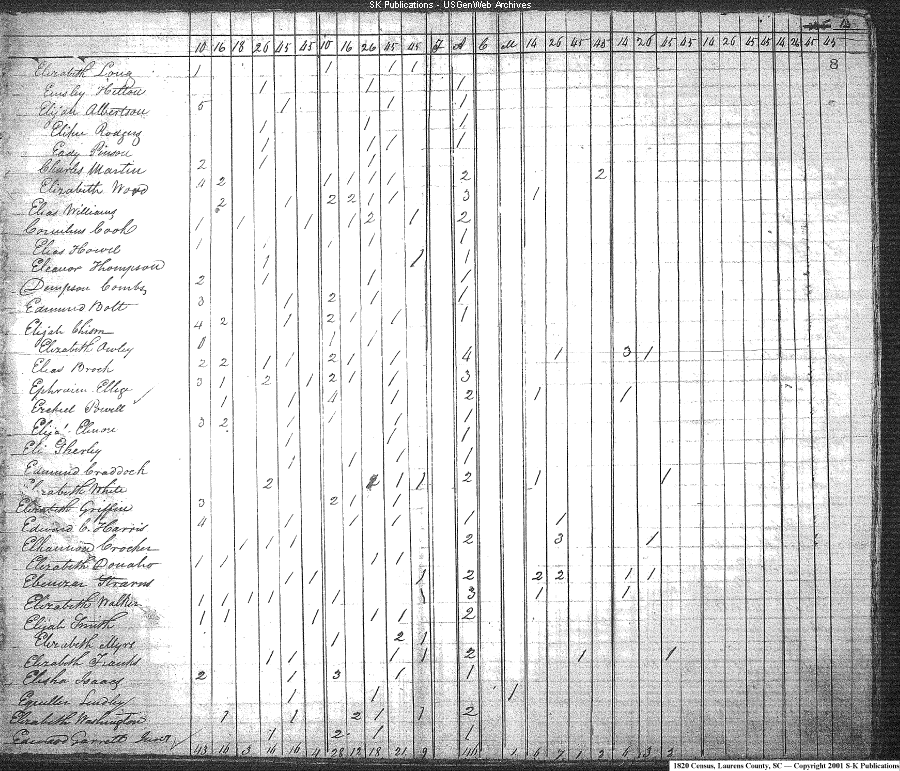 SK Publications - USGenWeb Archives
10 16 18 26 45 45 10 16 26 45 45 F A C M 14 26 45 45 14 26 45 45 14 26 45 45 14 26 45 45
8
Elizabeth Long 1 1 1 1
Emsley Hilton 1 1 1
Elijah Albertson 5 1 1 1
Rodgers 1 1 1
Eady Pinson 1 1 1 1
Charles Martin 2 1 1
Elizabeth Wood 4 2 1 1 1 1 2 2
Elias Williams 2 1 2 2 1 1 3 1
Cornelius Cook 1 1 1 1 2 1 2
Elias Howel 1 1 1 1 1
Eleanor Thompson 1 1 1
Dempson Combs 2 1 1 1
Edmund Bolt 3 1 2 1 1
Elijah Chism 4 2 1 2 1 1 1
Elizabeth Owley
Elias Brock 2 2 1 1 2 1 1 4 1 3 1
Ephraim Ellige 3 1 2 1 2 1 1 3
Ezekiel Powell 1 1 4 1 2 1 1
Elija Elmore 3 2 1 1 1 1
Eli Sherley 1 1 1
Edmund Craddock 1 1 1 1
Elizabeth White 2 2 1 1 2 1 1
Elizabeth Griffin 3 2 1 1
Edward C. Harris 4 1 1 1 1 1
Crocker 1 1 1 2 3 1
Elizabeth Donaho 1 1 1 1
Ebenezer Stearns 1 1 1 2 2 2 1 1
Elizabeth Walker 1 1 1 1 1 1 3 1 1
Elijah Smith 1 1 1 1 1 1 2
Elizabeth Myrs 1 2 1
Elizabeth Franks 1 1 1 1 2 1 1
Elisha Isaacs 2 1 3 1 1
Lindley 1 1 1
Elizabeth Washington 1 1 2 1 1 2
Edward Garrett 1 2 1 1
43 16 3 16 16 4 28 12 18 21 9 46 1 6 7 1 2 6 3 2
1820 Census, Laurens County, SC — Copyright 2001 S-K Publications